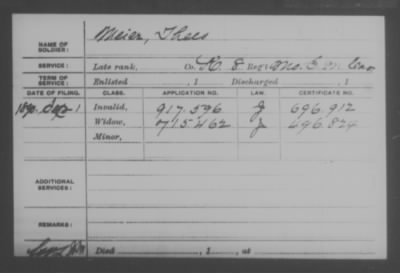 NAME OF SOLDIER: Meier, Thees
SERVICE: Late rank, Co. K. 8 Reg't Mo. S. M. Cav
TERM OF SERVICE: Enlisted , 1 Discharged , 1
DATE OF FILING. CLASS. APPLICATION NO. LAW. CERTIFICATE NO.
1890 1 Invalid, 917,596 J 696,912
Widow, 715,462 J 496,824
Minor,
ADDITIONAL SERVICES:
REMARKS:
Died , 1 , at